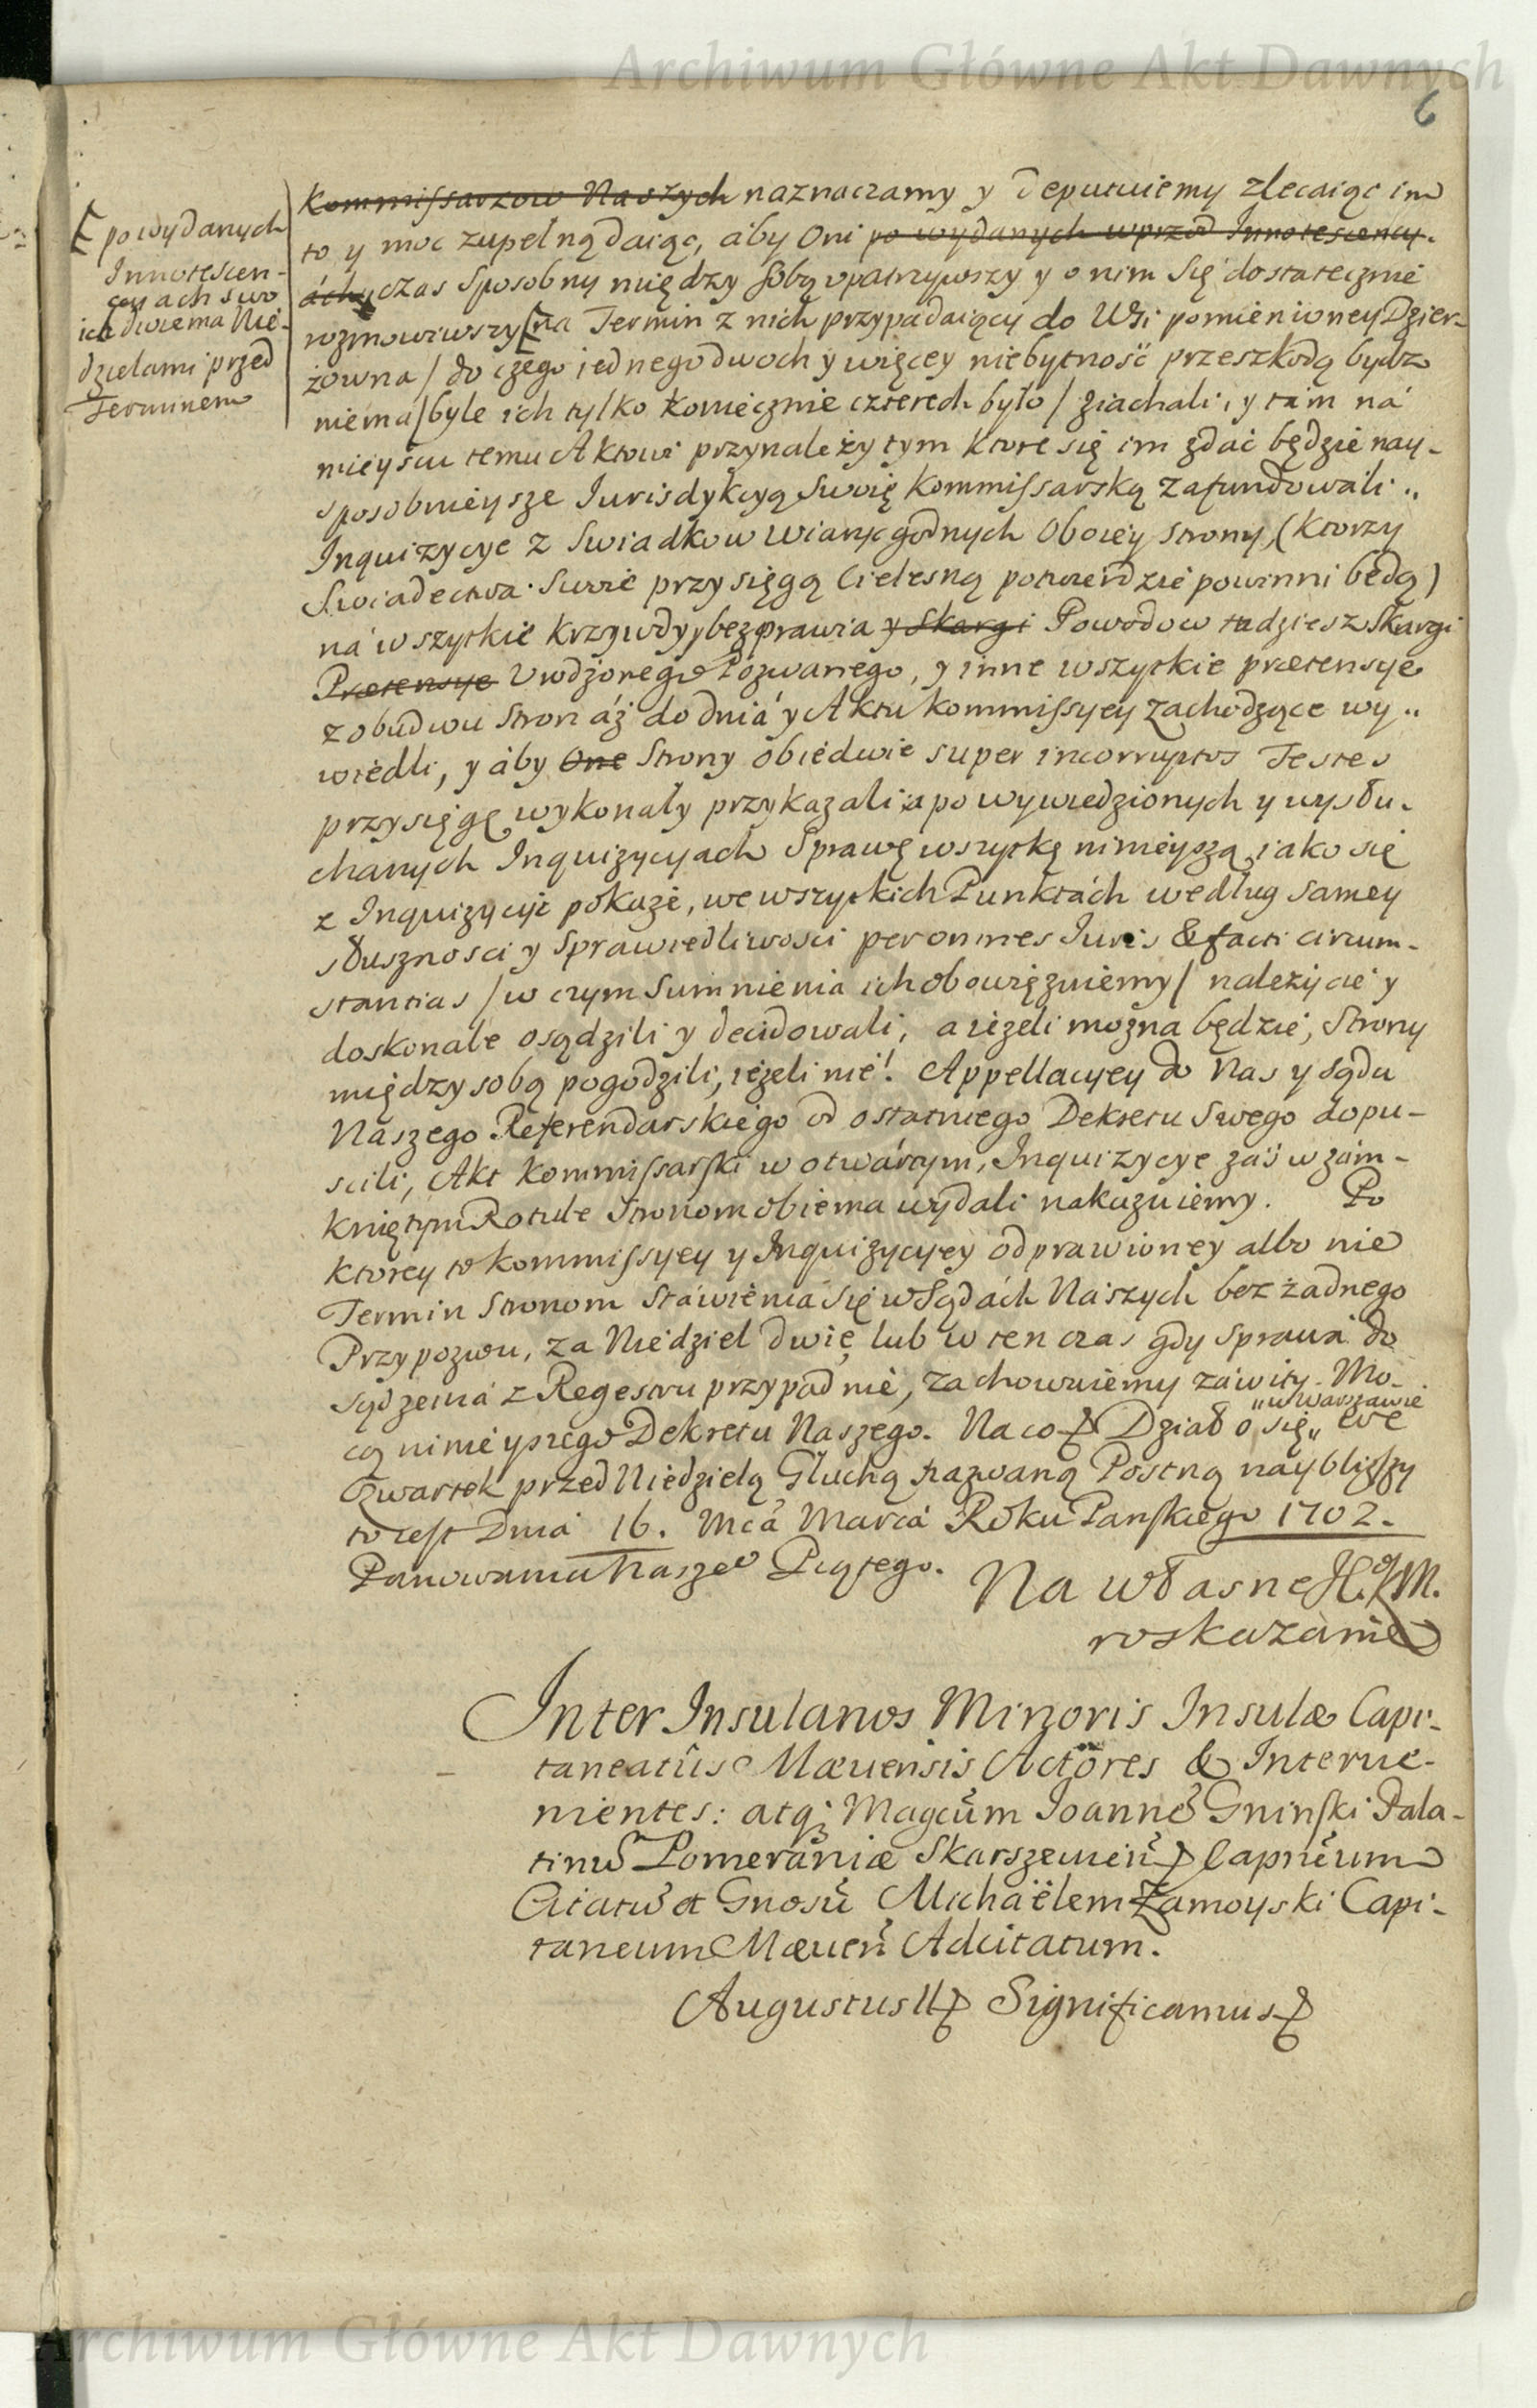 Archiwum Główne Akt Dawnych
6
[ po wydanych
Innotescen-
cyach swo
ich dwiema Nie-
dzielami przed
Terminem
Kommissarzow Naszych naznaczamy y deputuiemy zlecaiąc im
to y moc zupełną daiąc, aby Oni po wydanych wprzod Innotescency-
ách y czas sposobny między sobą vpatrzywszy y o nim się dostatecznie
rozmowiwszy [ na Termin z nich przypadaiący do Wsi pomienioney Dzier-
żowna / do czego iednego dwoch y więcey niebytność przeszkodą bydz
niema / byle ich tylko koniecznie czterech było / ziachali, y tam ná
mieyscu temu Aktowi przynależytym ktore się im zdać będzie nay-
sposobnieysze Iurisdykcyą Swoię Kommissarską zafundowali..
Inquizycye z Swiadkow wiary godnych Oboiey Strony, (Ktorzy
Swiadectwa Swoie przysięgą Cielesną potwierdzić powinni będą)
ná wszytkie krzywdy y bezprawia y Skargi Powodow tudziesz Skargi
Prætensye Urodzonego Pozwanego, y inne wszytkie prætensye
z obudwu Stron áż do dniá y Aktu kommissyey zachodzące wy..
wiedli, y áby One Strony obiedwie super incorruptos Testes
przysięgę wykonały przykazali a po wywiedzionych y wysłu-
chanych Inquizycyach Sprawę wszytkę ninieyszą, iako się
z Inquizycyi pokaże, we wszytkich Punktách według samey
słusznosci y Sprawiedliwosci per omnes Iuris & facti circum-
stantias / w czym Sumnienia ich obowięzuiemy / należycie y
doskonale osądzili y decidowali, a ieżeli można będzie, Strony
między sobą pogodzili, ieżeli nie! Appellacyey do Nas y Sądu
Naszego Referendarskiego od ostatniego Dekretu Swego dopu-
scili, Akt Kommissarski w otwártym, Inquizycye zaś w zám-
kniętym Rotule Stronom obiema wydali nakazuiemy. Po
ktorey to Kommissyey y Inquizycyey odprawioney albo nie
Termin Stronom Stáwienia się w Sądách Naszych bez żadnego
Przypozwu, za Niedziel dwie, lub w ten czas gdy Sprawá do
sądzenia z Regestru przypadnie, zachowuiemy záwity. Mo-
cą ninieyszego Dekretu Naszego. Na co Działo się „ we
„ w Warszawie
Czwartek przed Niedzielą Głuchą nazwaną Postną naybliższy
to iest Dniá 16. Mcá Marca Roku Panskiego 1702.
Panowania Naszeo Piątego.
Na własne J.K.M.
roskazanie
Inter Insulanos Minoris Insulæ Capi-
taneatûs Mævensis Actores & Interve-
nientes: atq; Magcum Ioannem Gninski Pala-
tinum Pomeraniæ Skarszewien Capneum
Citatum et Gnosum Michaëlem Zamoyski Capi-
taneum Mæven Adcitatum.
Augustus II Significamus
Archiwum Główne Akt Dawnych